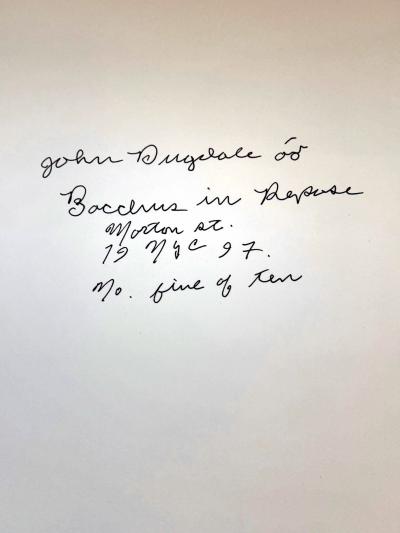 John Dugdale óó
Bacchus in Repose
Morton St.
19 NYC 97.
No. five of ten